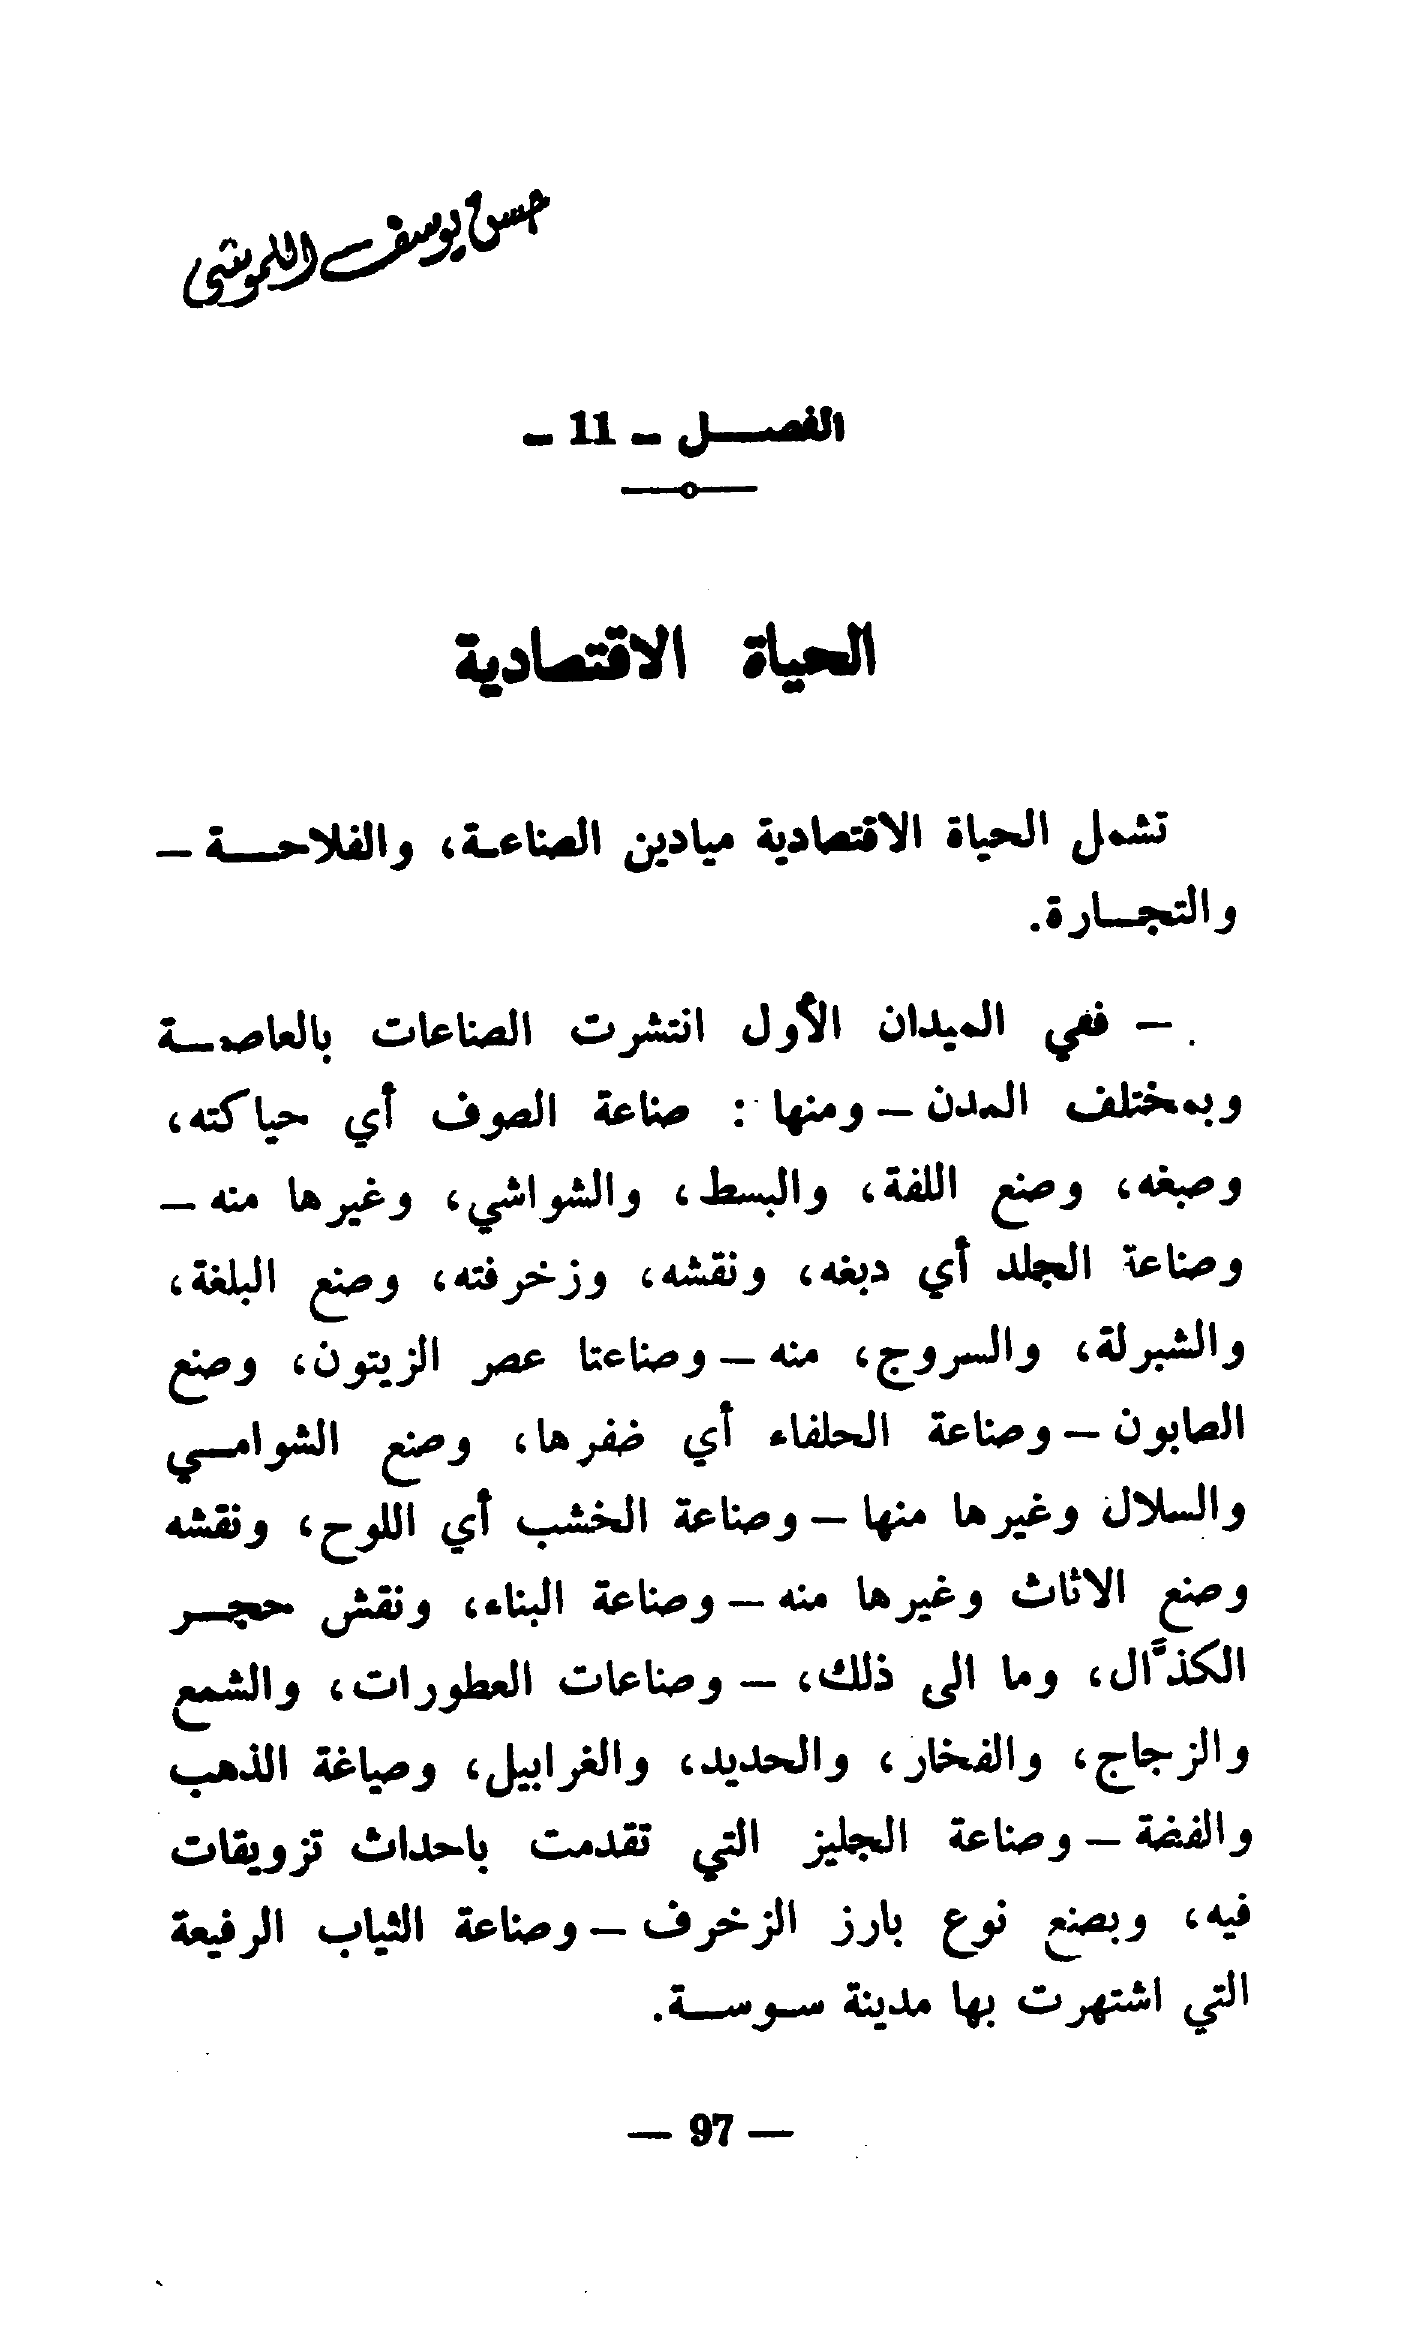 حسن يوسف اللموشي
الفصل - 11 -
الحياة الاقتصادية
تشمل الحياة الاقتصادية ميادين الصناعة، والفلاحة —
والتجارة.
— ففي الميدان الأول انتشرت الصناعات بالعاصمة
وبمختلف المدن — ومنها : صناعة الصوف أي حياكته،
وصبغه، وصنع اللفة، والبسط، والشواشي، وغيرها منه —
وصناعة الجلد أي دبغه، ونقشه، وزخرفته، وصنع البلغة،
والشبرلة، والسروج، منه — وصناعتا عصر الزيتون، وصنع
الصابون — وصناعة الحلفاء أي ضفرها، وصنع الشوامي
والسلال وغيرها منها — وصناعة الخشب أي اللوح، ونقشه
وصنع الاثاث وغيرها منه — وصناعة البناء، ونقش حجر
الكذَّال، وما الى ذلك، — وصناعات العطورات، والشمع
والزجاج، والفخار، والحديد، والغرابيل، وصياغة الذهب
والفضة — وصناعة الجليز التي تقدمت باحداث تزويقات
فيه، وبصنع نوع بارز الزخرف — وصناعة الثياب الرفيعة
التي اشتهرت بها مدينة سوسة.
— 97 —